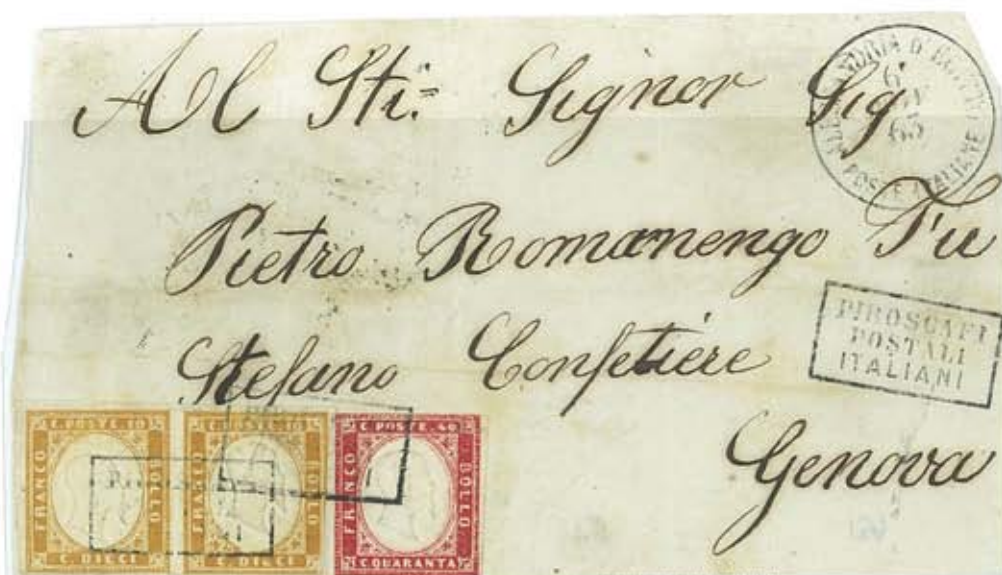 Al Sti: Signor Sig
Pietro Romanengo Fu
Stefano Confetiere
Genova
ALESSANDRIA D'EGITTO
6
63
POSTE ITALIANE
PIROSCAFI
POSTALI
ITALIANI
C. POSTE. 10
FRANCO
BOLLO
C. DIECI
C. POSTE. 10
FRANCO
BOLLO
C. DIECI
C. POSTE. 40
FRANCO
BOLLO
C. QUARANTA